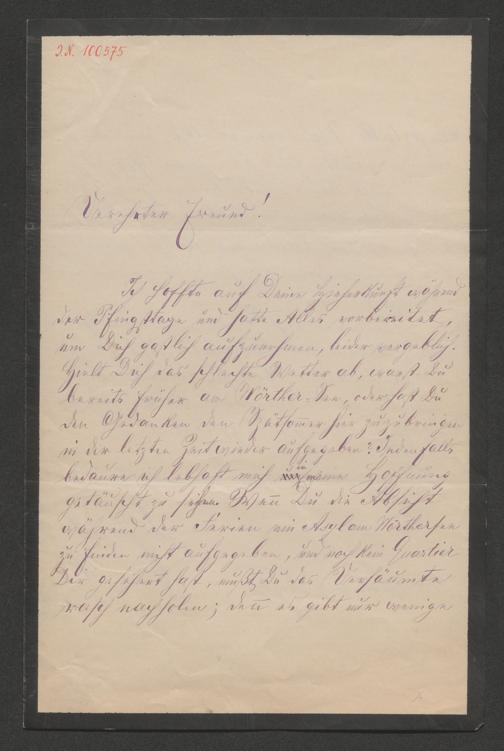 J.N. 100575
Verehrter Freund!
Ich hoffte auf Deine Hieherkunft während
der Pfingsttage und hatte Alles vorbereitet,
um Dich gastlich aufzunehmen, leider vergeblich.
Hielt Dich das schlechte Wetter ab, warst Du
bereits früher am Wörther-See, oder hast Du
den Gedanken den Spätsommer hier zuzubringen
in der letzten Zeit wieder aufgegeben? Jedenfalls
bedaure ich lebhaft mich in meine Hoffnung
getäuscht zu sehen. Wenn̄ Du die Absicht
während der Ferien ein Asyl am Wörthersee
zu finden nicht aufgegeben, und noch kein Quartier
Dir gesichert hast, mußt Du das Versäumte
rasch nachholen; den̄ es gibt nur wenige